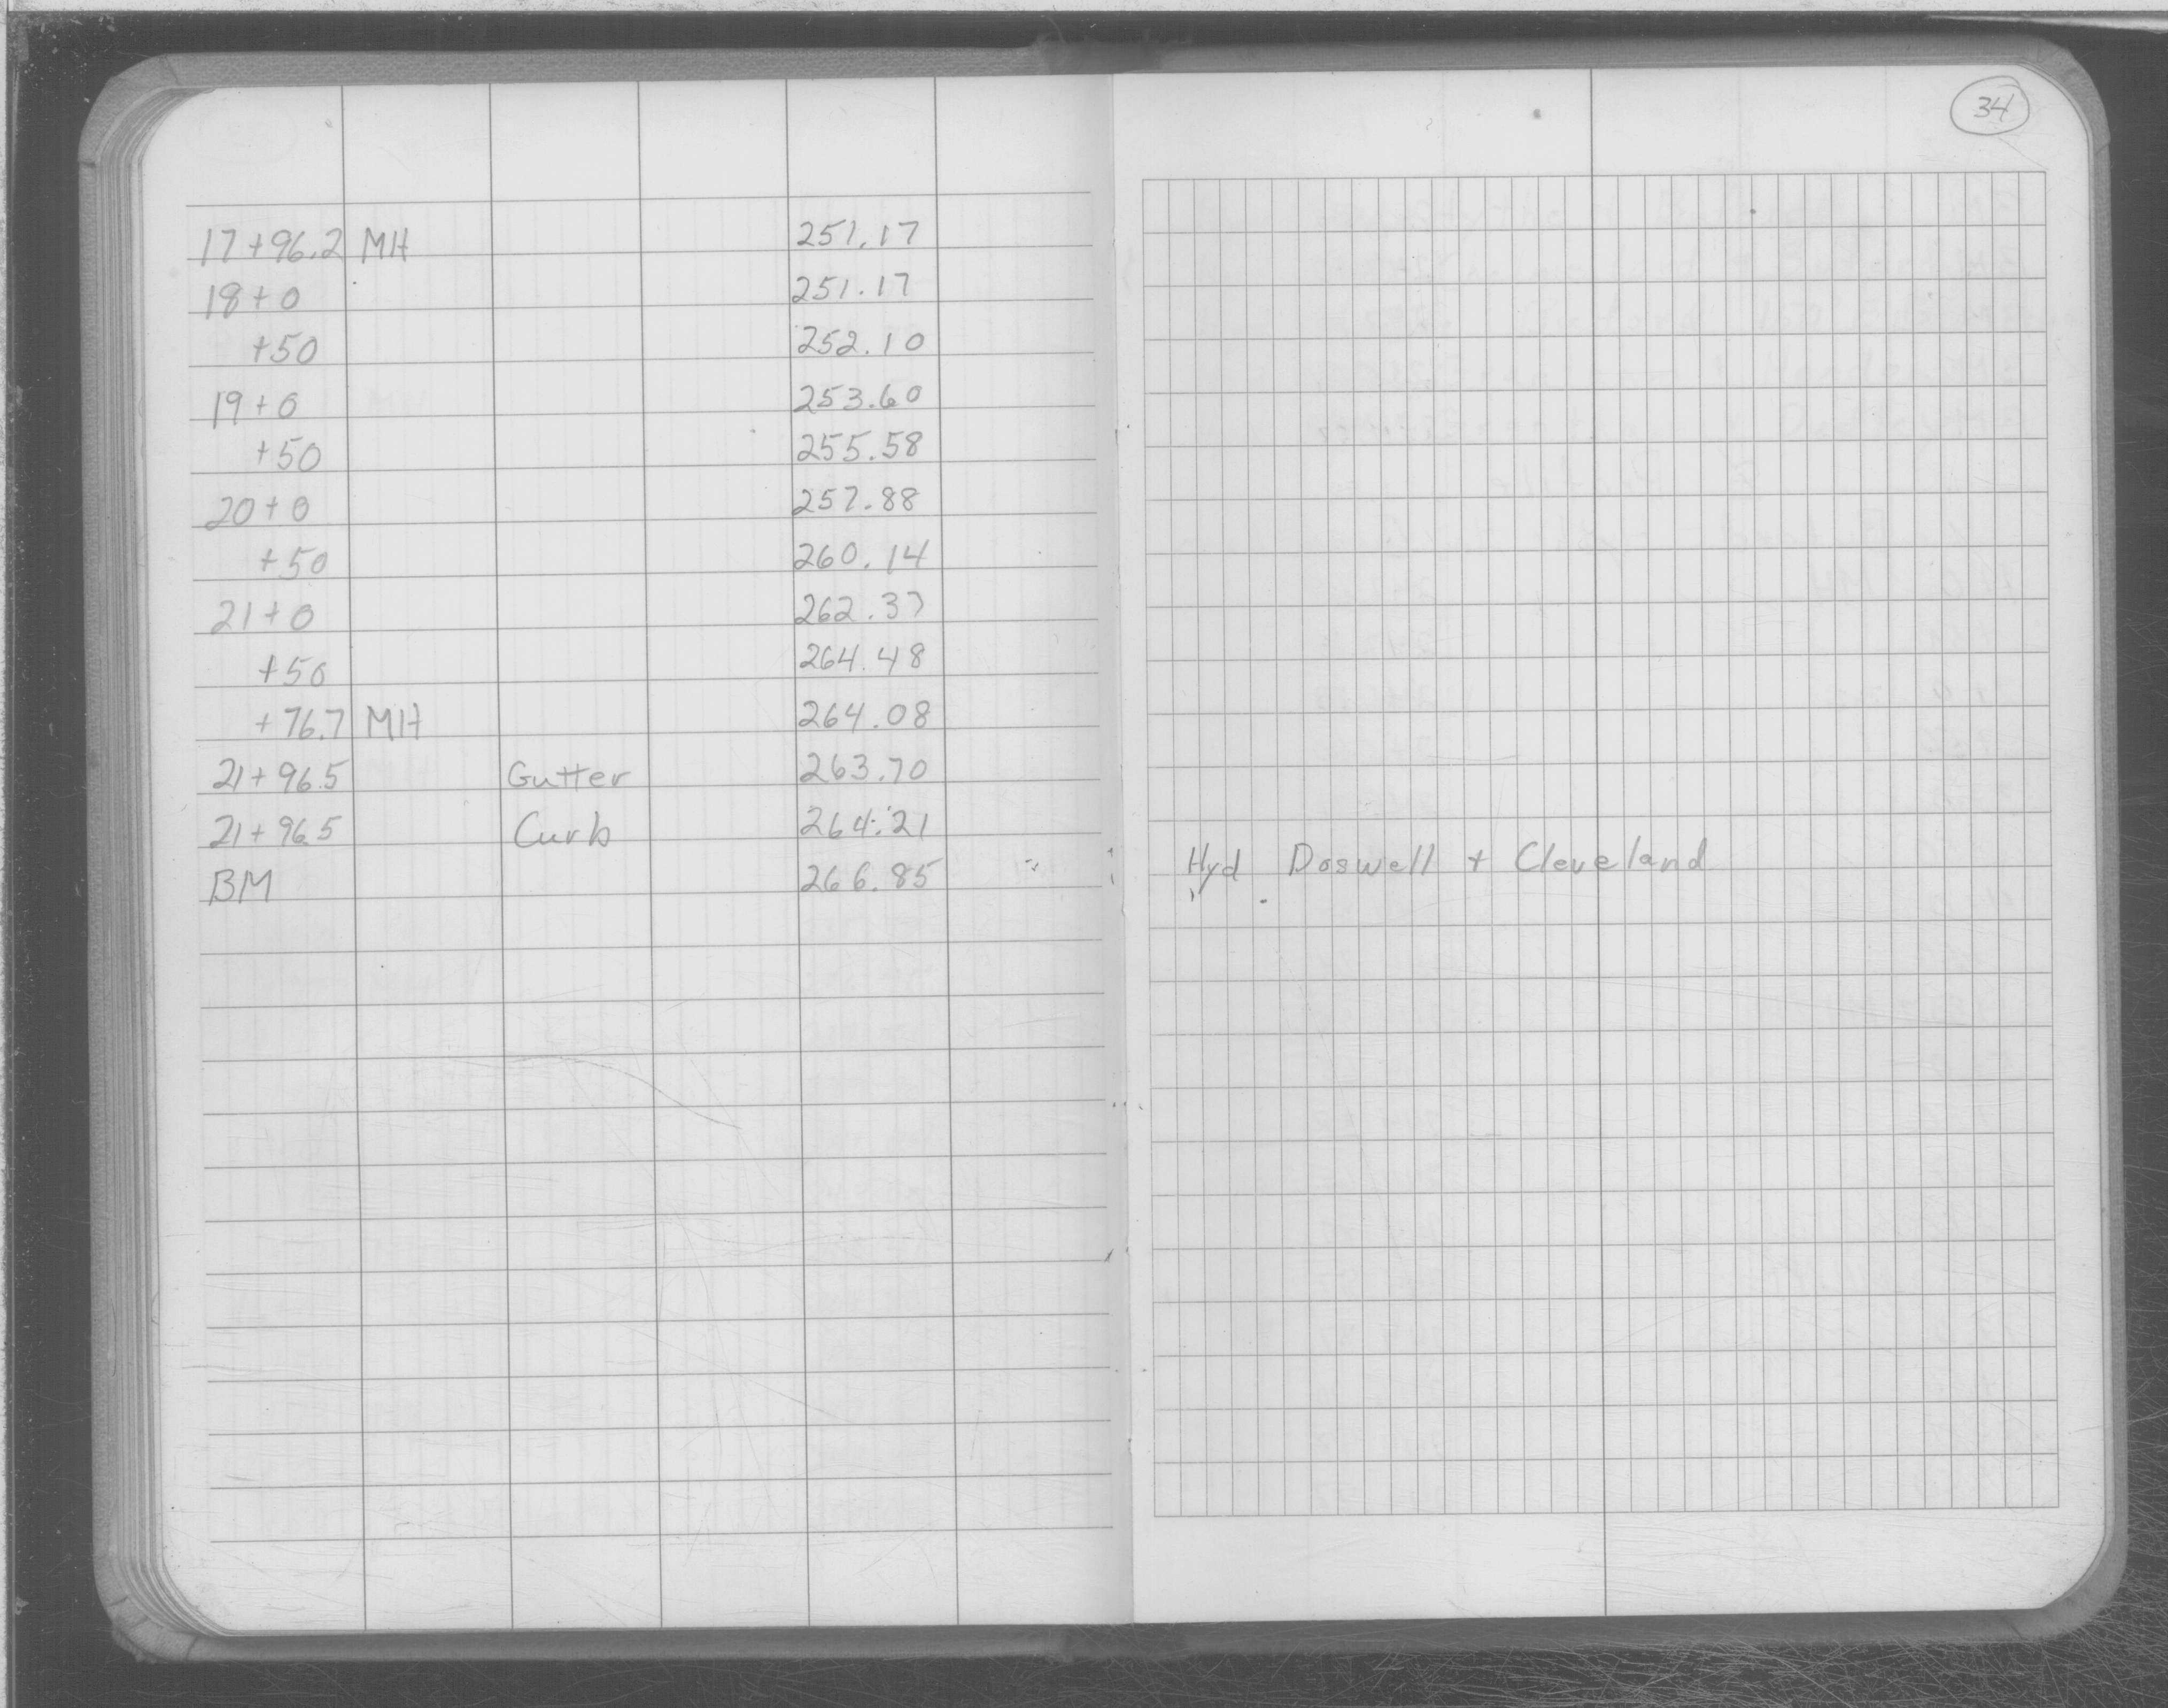 34
17+96.2 MH 251.17
18+0 251.17
+50 252.10
19+0 253.60
+50 255.58
20+0 257.88
+50 260.14
21+0 262.37
+50 264.48
+76.7 MH 264.08
21+96.5 Gutter 263.70
21+96.5 Curb 264.21
BM 266.85 Hyd Doswell + Cleveland